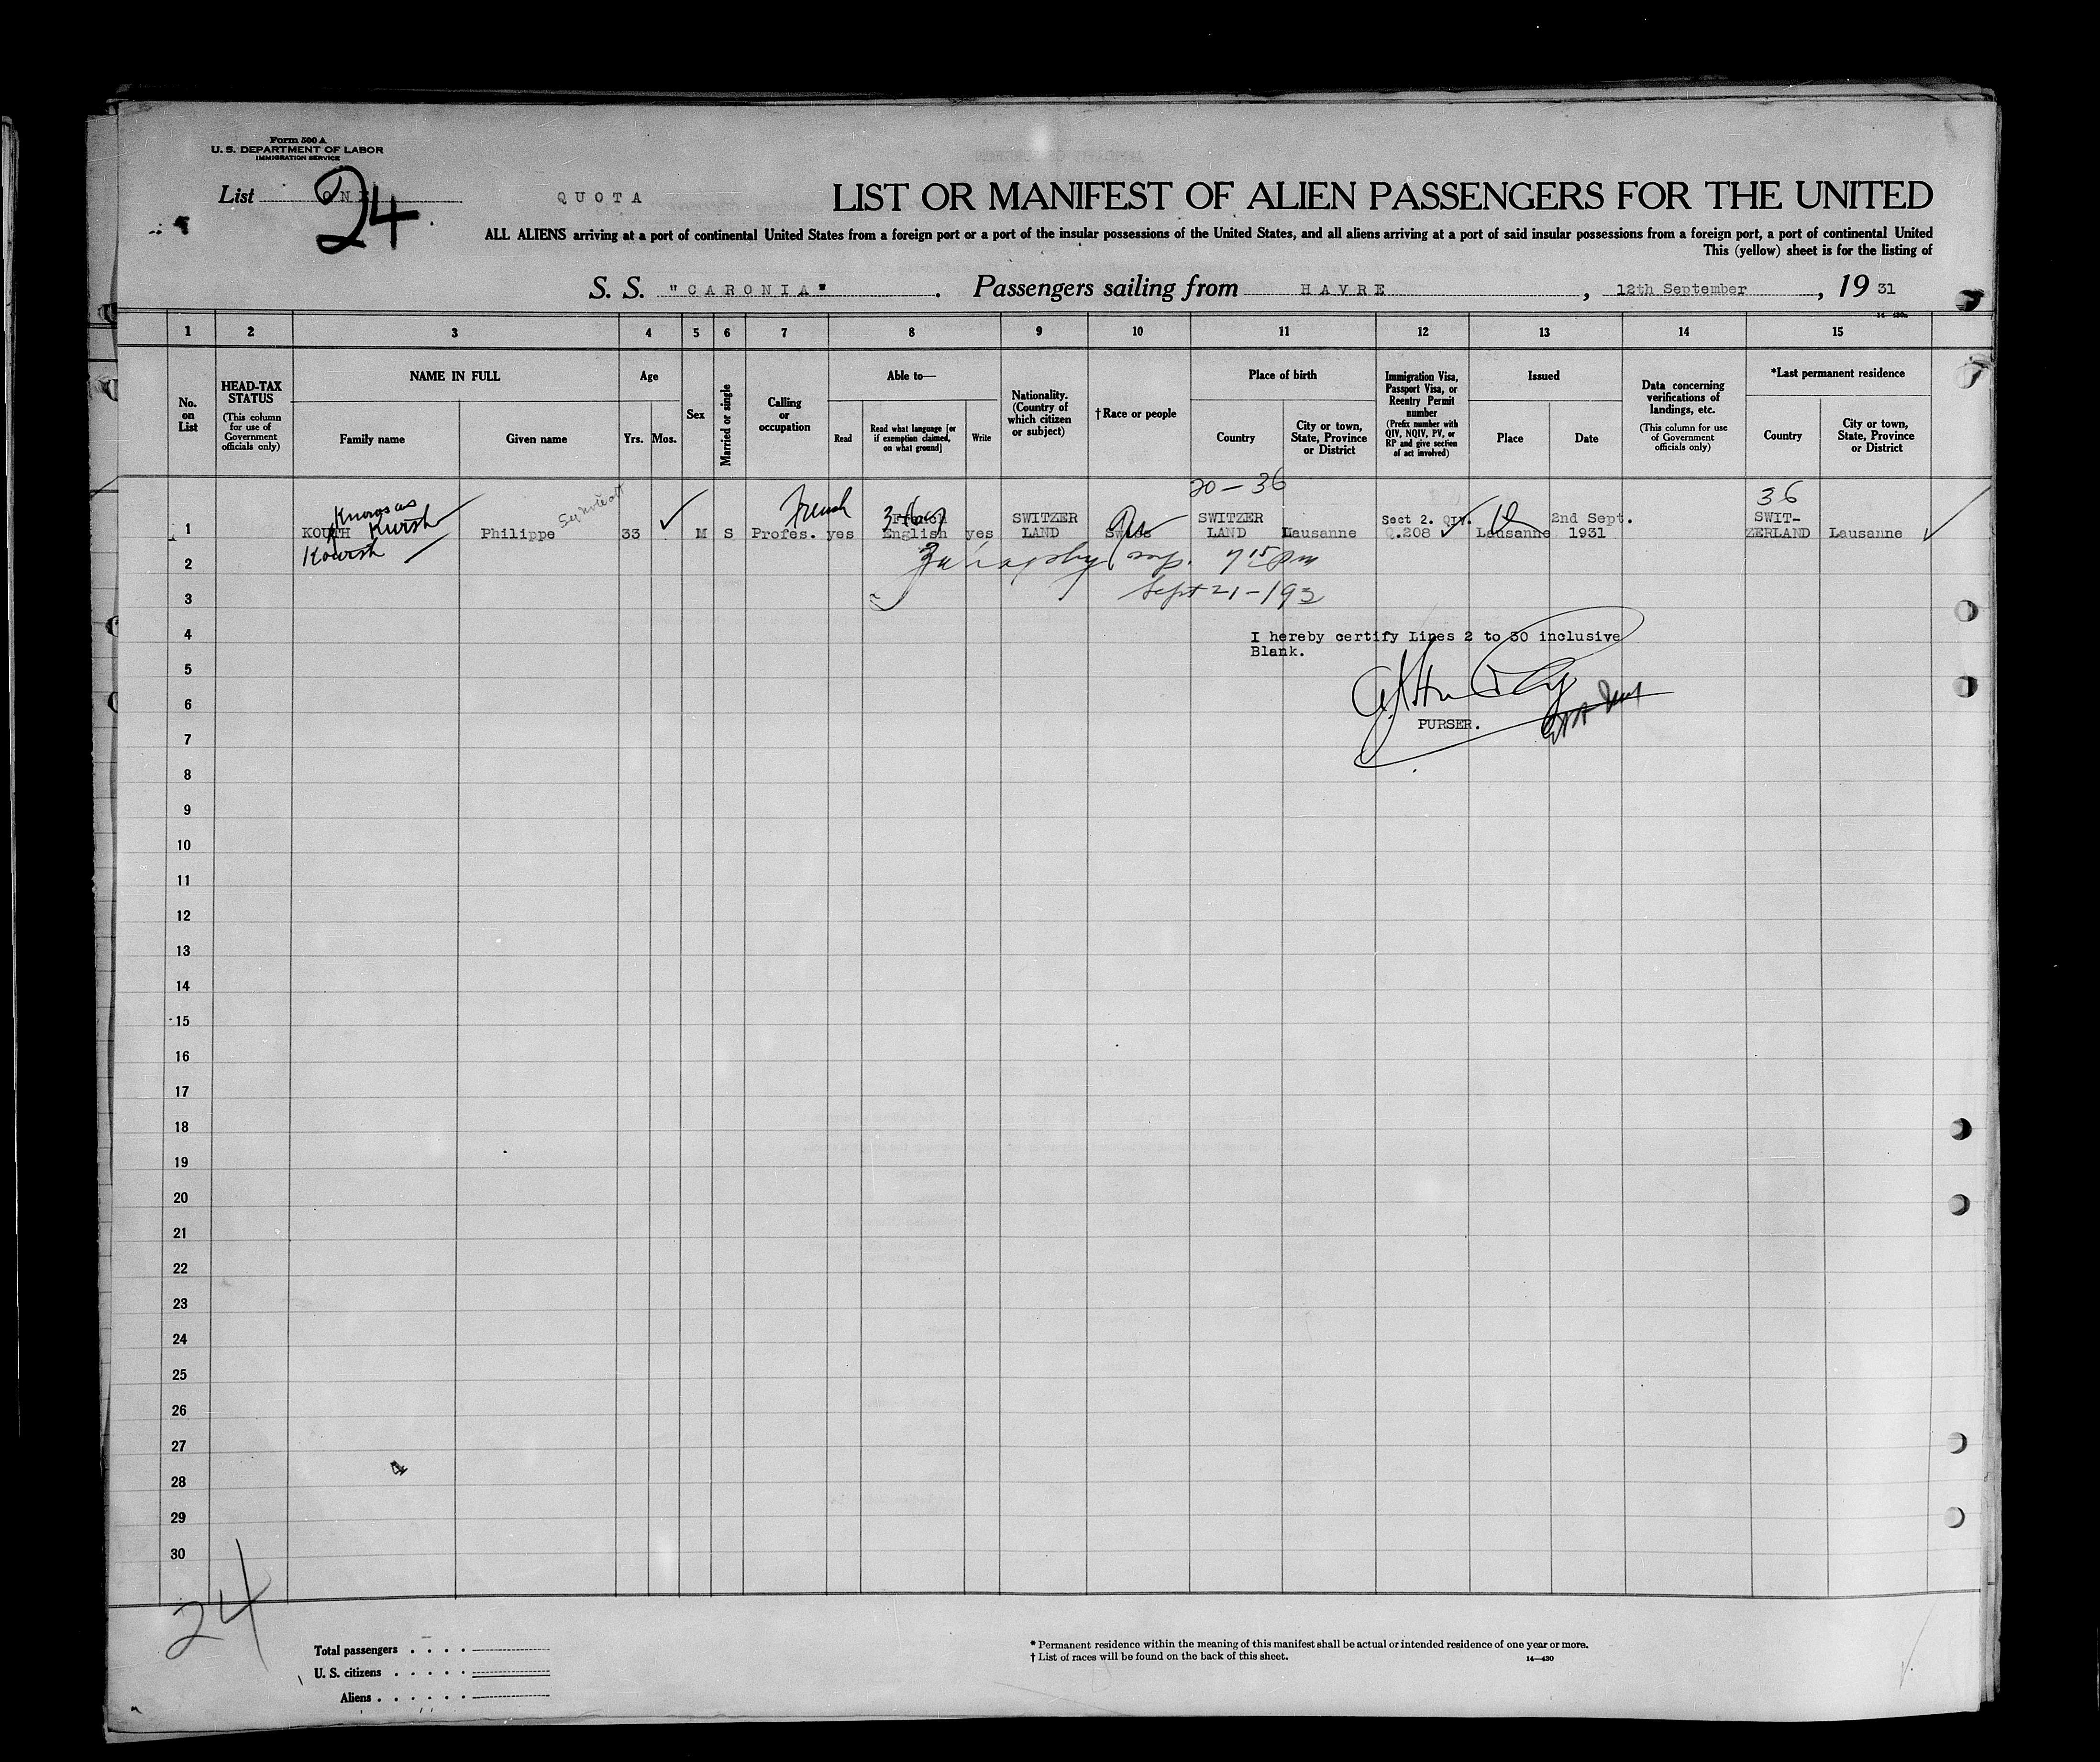 Form 500 A
U. S. DEPARTMENT OF LABOR
IMMIGRATION SERVICE
List ONE 24
QUOTA
LIST OR MANIFEST OF ALIEN PASSENGERS FOR THE UNITED
ALL ALIENS arriving at a port of continental United States from a foreign port or a port of the insular possessions of the United States, and all aliens arriving at a port of said insular possessions from a foreign port, a port of continental United
This (yellow) sheet is for the listing of
S. S. "CARONIA". Passengers sailing from HAVRE, 12th September, 19 31
14—430a
1 2 3 4 5 6 7 8 9 10 11 12 13 14 15
No. on List
HEAD-TAX STATUS
(This column for use of Government officials only)
NAME IN FULL
Family name
Given name
Age
Yrs.
Mos.
Sex
Married or single
Calling or occupation
Able to—
Read
Read what language [or if exemption claimed, on what ground]
Write
Nationality. (Country of which citizen or subject)
† Race or people
Place of birth
Country
City or town, State, Province or District
Immigration Visa, Passport Visa, or Reentry Permit number
(Prefix number with QIV, NQIV, PV, or RP and give section of act involved)
Issued
Place
Date
Data concerning verifications of landings, etc.
(This column for use of Government officials only)
*Last permanent residence
Country
City or town, State, Province or District
20-36
36
Knows as
French
1 KOUTH Kursh Philippe 33 M S Profes. yes French English yes SWITZER LAND Swiss SWITZER LAND Lausanne Sect 2. QIV. Q.208 Lausanne 2nd Sept. 1931 SWIT- ZERLAND Lausanne
Kowrsh
2 7 15 pm
3 Sept 21-193
4 I hereby certify Lines 2 to 30 inclusive
Blank.
5
6
PURSER.
7
8
9
10
11
12
13
14
15
16
17
18
19
20
21
22
23
24
25
26
27
28
29
30
24
Total passengers
U. S. citizens
Aliens
* Permanent residence within the meaning of this manifest shall be actual or intended residence of one year or more.
† List of races will be found on the back of this sheet.
14—430